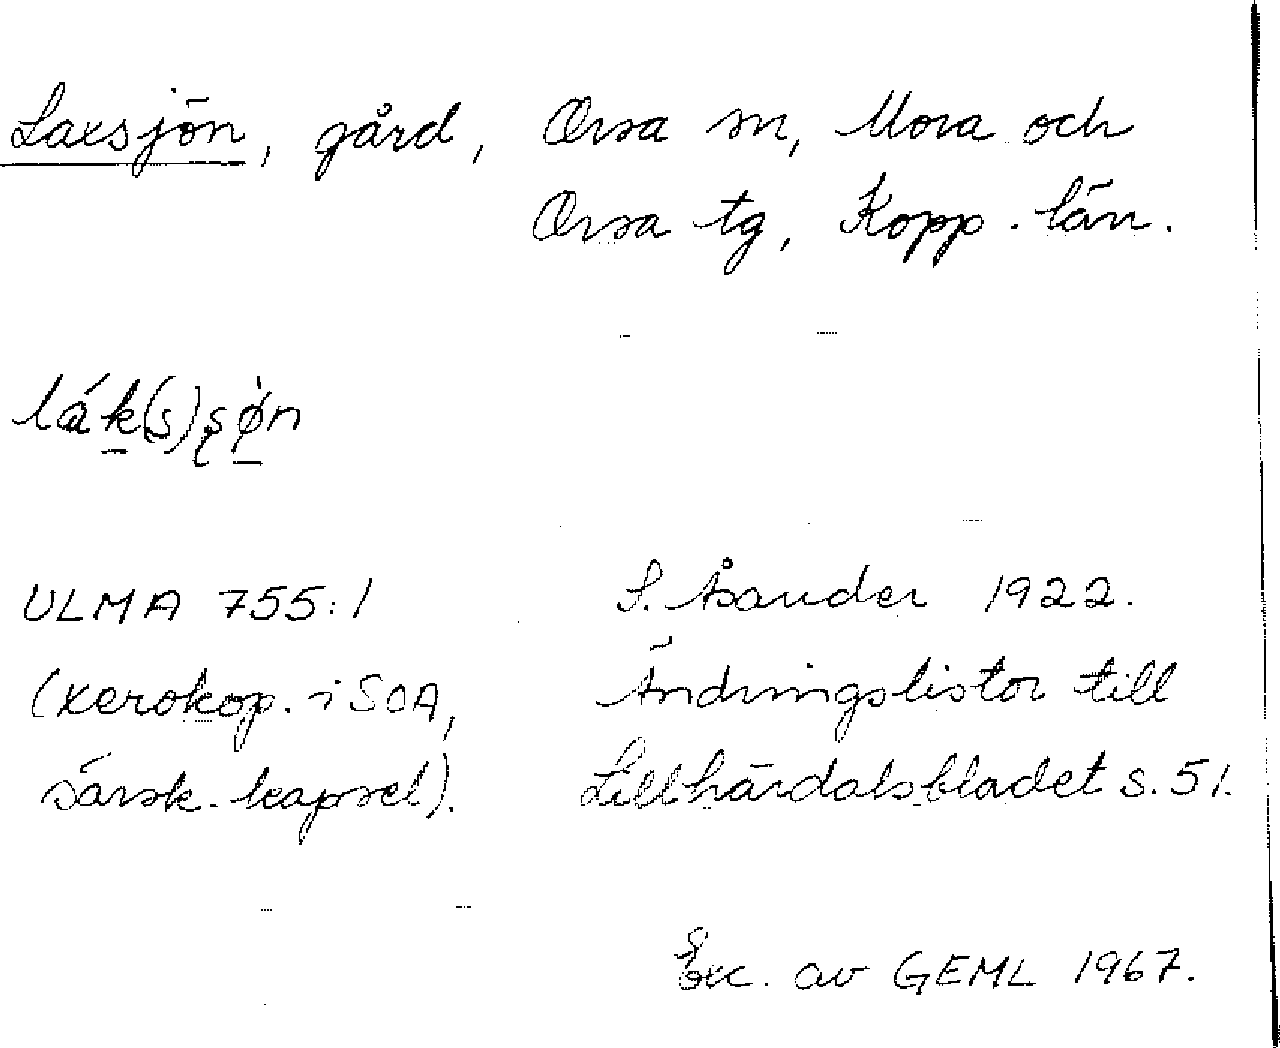 Laxsjön, gård, Orsa sn, Mora och
Orsa tg, Kopp. län.
lák(s)ʂø̀n
ULMA 755:1 S. Åsander 1922.
(xerokop. i SOA, Ändringslistor till
särsk. kapsel). Lillhärdalsbladet s. 51.
Exc. av GEML 1967.